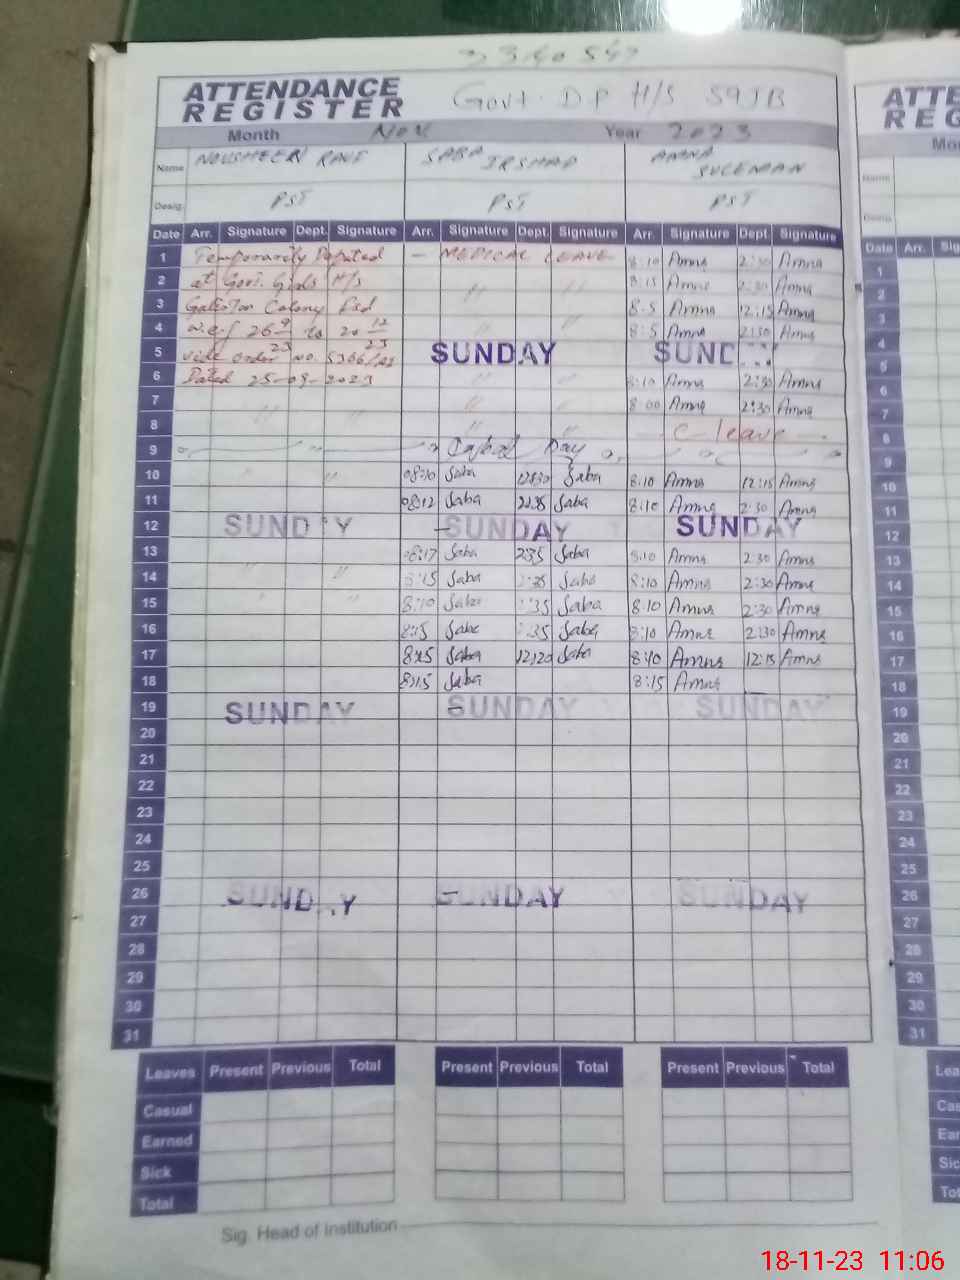 ATTENDANCE REGISTER Govt. D.P H/S 59JB
Month Nov Year 2023
Name NOUSHEEN RAUF SABA IRSHAD AMNA SULEMAN
Desig. PST PST PST
Date Arr. Signature Dept. Signature Arr. Signature Dept. Signature Arr. Signature Dept. Signature
1 Temporarily Deputed - MEDICAL LEAVE 8:10 Amna 2:30 Amna
2 at Govt. Girls H/S " " 8:15 Amna 2:30 Amna
3 Colony Fsd " " 8:5 Amna 12:15 Amna
4 w.e.f 26-9-23 to 20-12-23 " 8:5 Amna 2:30 Amna
5 vide order no. 5366/ SUNDAY SUND
6 Dated 25-09-2023 " " 8:10 Amna 2:30 Amna
7 " " " " 8:00 Amna 2:30 Amna
8 " " " " C-leave
9 " Iqbal Day
10 " " 08:10 Saba 12:30 Saba 8:10 Amna 12:15 Amna
11 08:12 Saba 2:35 Saba 8:10 Amna 2:30 Amna
12 SUNDAY SUNDAY SUNDAY
13 08:17 Saba 2:35 Saba 8:10 Amna 2:30 Amna
14 " " 8:15 Saba :35 Saba 8:10 Amna 2:30 Amna
15 " " 8:10 Saba :35 Saba 8:10 Amna 2:30 Amna
16 8:15 Saba :35 Saba 8:10 Amna 2:30 Amna
17 8:15 Saba 12:20 Saba 8:10 Amna 12:15 Amna
18 8:15 Saba 8:15 Amna
19 SUNDAY SUNDAY SUNDAY
20
21
22
23
24
25
26 SUNDAY SUNDAY SUNDAY
27
28
29
30
31
Leaves Present Previous Total Present Previous Total Present Previous Total
Casual
Earned
Sick
Total
Sig. Head of institution
ATTE
REG
Mon
Name
Desig.
Date Arr. Sig
1
2
3
4
5
6
7
8
9
10
11
12
13
14
15
16
17
18
19
20
21
22
23
24
25
26
27
28
29
30
31
Lea
Cas
Ear
Sic
Tot
18-11-23 11:06